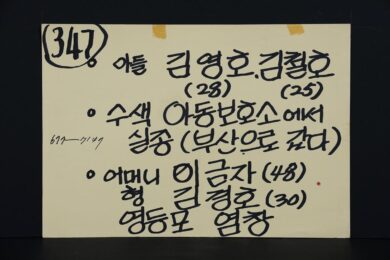 347
아들 김영호.김철호
(28) (25)
수색 아동보호소에서
실종 (부산으로 갔다)
어머니 이금자 (48)
형 김경호 (30)
영등포 염창